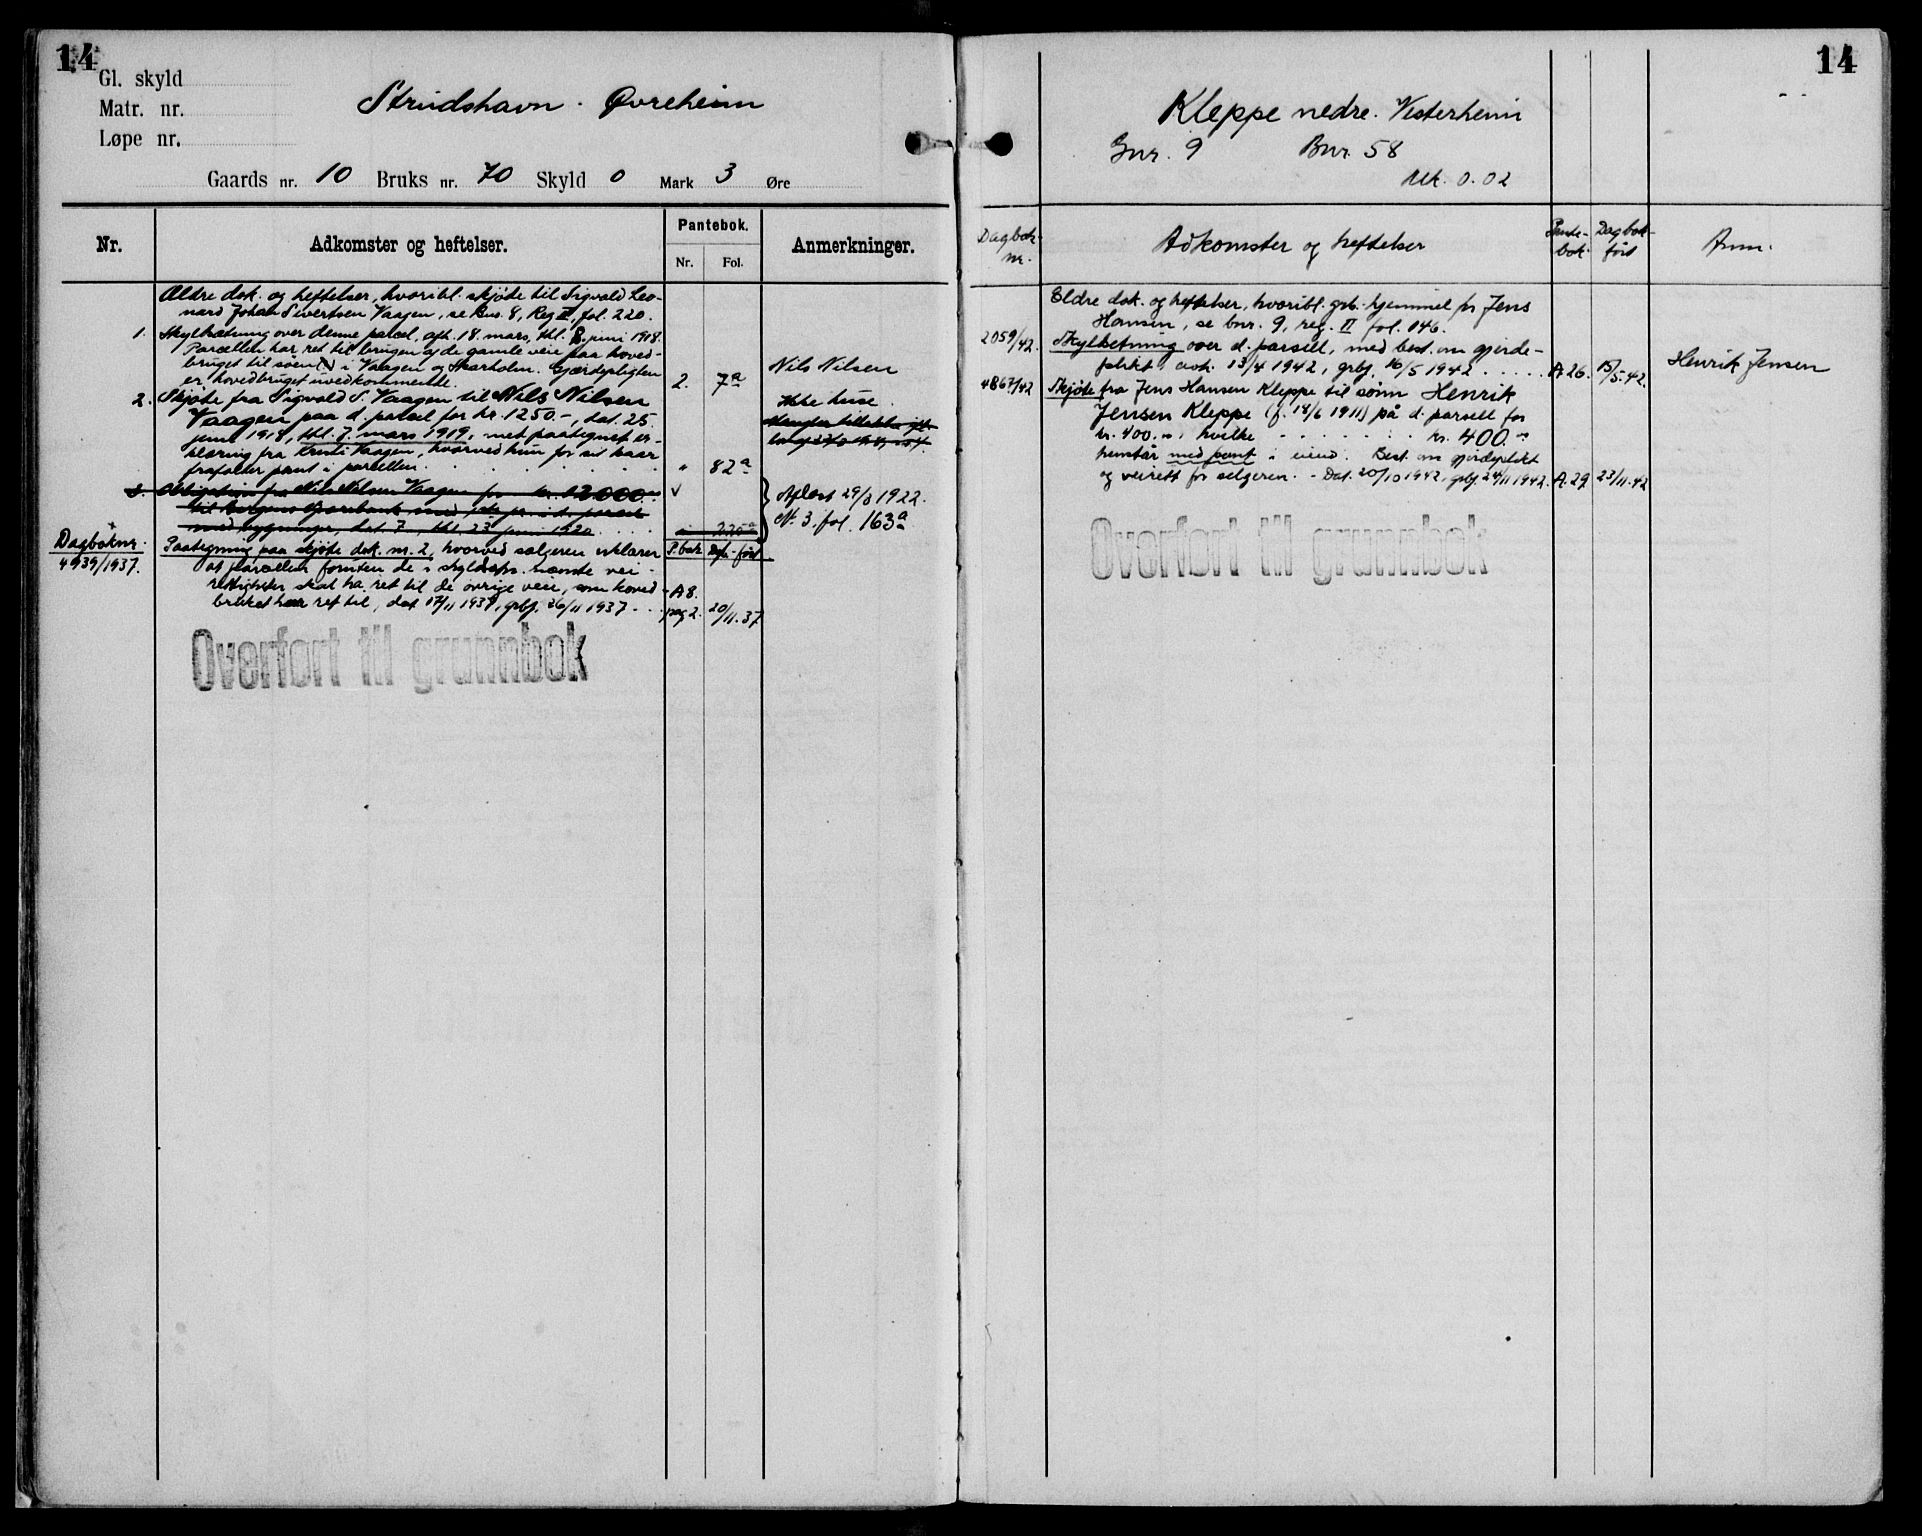 14
Gl. skyld
Matr. nr.
Løpe nr.
Strudshavn. Øvreheim
Gaards nr. 10 Bruks nr. 70 Skyld 0 Mark 3 Øre
Nr.
Adkomster og heftelser.
Pantebok.
Nr. Fol.
Anmerkninger.
Ældre dok. og heftelser, hvoribl. skjøde til Sigvald Leo-
nard Johan Sivertsen Vaagen, se Bno. 8, Reg II, fol. 220.
1. Skyldsetning over denne parcel, afh. 18. mars, thl. 8. juni 1918.
Parcellen har ret til brugen af de gamle veie paa hoved-
bruget til søen i Vaagen og Skarholm. Gjærdepligten
er hovedbruget uvedkommende. 2. 7a
Nils Nilsen
2. Skjøde fra Sigvald S. Vaagen til Nils Nilsen
Vaagen paa d. parcel for kr. 1250.-, dat. 25.
juni 1918, thl. 7. mars 1919, med paategnet er-
klæring fra Kristi Vaagen, hvorved hun for sit haar
frafalder pant i parcellen. " 82a
Ikke huse.
3. Obligation fra Nils Nilsen Vaagen for kr. 12000.-
til Bergens Sparebank med 1ste pr. i d. parcel
med bygninger, dat. 7, thl. 23 juni 1920 " 225a
Aflæst 29/8 1922.
N. 3. fol. 163a
Dagboknr.
4939/1937.
Paategning paa skjøte dok. nr. 2, hvorved sælgeren erklærer
P.bok Dgb.-ført
at parcellen foruten de i skyldsfor. nævnte vei-
rettigheter skal ha ret til de øvrige veie, som hoved-
bruket har ret til, dat 17/11 1937, grbf. 26/11 1937
A8.
pag 2. 20/11.37
Overført til grunnbok
14
Kleppe nedre. Vesterheim
Gnr. 9 Bnr. 58
Mk. 0.02
Dagbok-
nr.
Adkomster og heftelser
Pante-
bok
Dagbok-
ført
Anm.
Eldre dok. og heftelser, hvoribl. grb. hjemmel for Jens
Hansen, se bnr. 9, reg. II fol. 146.
2059/42. Skyldsetning over d. parsell, med best. om gjerde-
plikt, avh. 13/4 1942, grbf. 16/5 1942 A.26. 15/5.42.
Henrik Jensen
4867/42 Skjøte fra Jens Hansen Kleppe til sønn Henrik
Jensen Kleppe (f. 18/6 1911) på d. parsell for
kr. 400.-, hvilke kr. 400.-
henstår med pant i eiend. Best. om gjerdeplikt
og veirett for selgeren. - Dat. 20/10 1942, grbf. 24/11 1942. A.29. 23/11.42
Overført til grunnbok